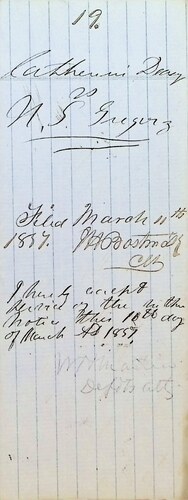 19.
Catherine Davy
vs
N. S. Gregory
Filed March 11th
1857.
Clk
I hereby accept
service of the within
notice this 10th day
of March AD 1857
Defts Atty